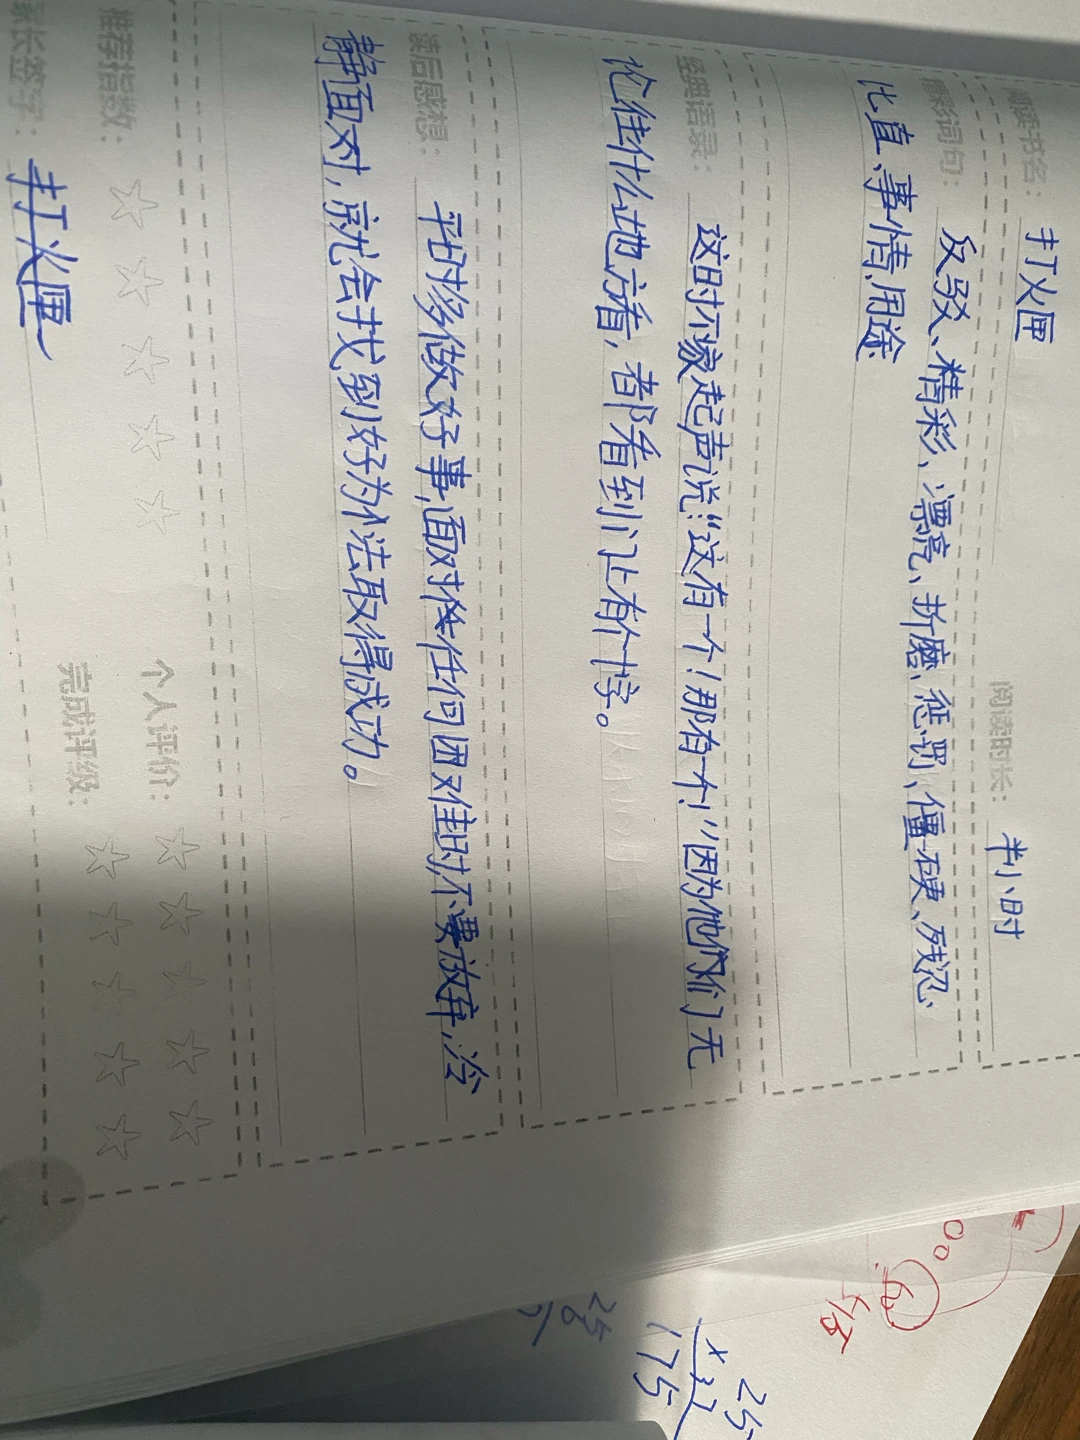 阅读书名：打火匣
阅读时长：半小时
精彩词句：反驳、精彩、漂亮、折磨、惩罚、僵硬、残忍、
比直、事情、用途
经典语录：这时不家起声说：“这有一个！那有一个！”因为他们们无
论往什么地方看，都看到门上有个十字。
读后感想：平时多做好事，面对任何困难时，不要放弃，冷
静面对，就会找到好为个法取得成功。
推荐指数：☆☆☆☆☆
个人评价：☆☆☆☆☆
家长签字：打火匣
完成评级：☆☆☆☆☆
25
×37
175
25